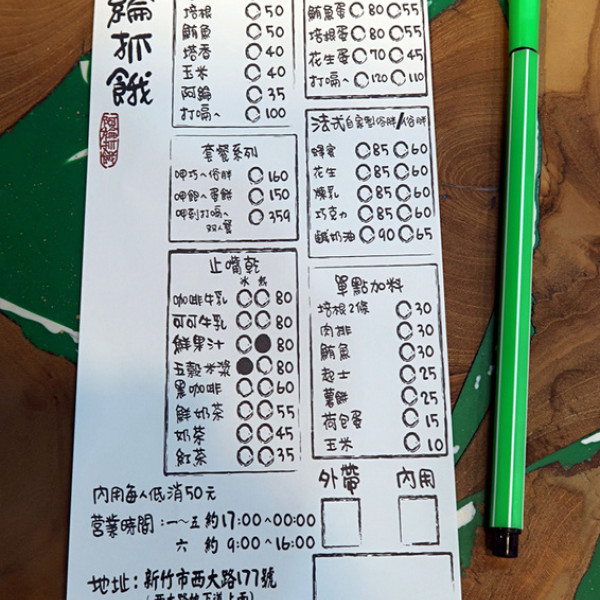 綸抓餓
培根 50
鮪魚 50
塔香 40
玉米 40
阿綸 35
打嗝~ 100
鮪魚蛋 80 55
培根蛋 80 55
花生蛋 70 45
打嗝~ 120 110
套餐系列
呷巧~俗胖 160
呷飽~蛋餅 150
呷到打嗝~ 359
双人餐
法式自家製俗胖/俗胖
蜂蜜 85 60
花生 85 60
煉乳 85 60
巧克力 85 60
鹹奶油 90 65
止嘴乾
冰 熱
咖啡牛乳 80
可可牛乳 80
鮮果汁 80
五穀米漿 80
黑咖啡 60
鮮奶茶 55
奶茶 45
紅茶 35
單點加料
培根2條 30
肉排 30
鮪魚 30
起士 25
薯餅 25
荷包蛋 15
玉米 10
外帶 內用
內用每人低消50元
營業時間:一~五 約17:00~00:00
六 約 9:00~16:00
地址:新竹市西大路177號